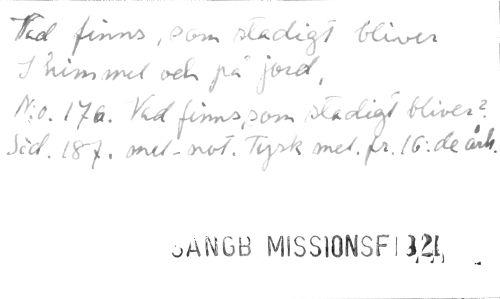 Vad finns, som stadigt bliver
I himmel och på jord,
N:o. 176. Vad finns, som stadigt bliver?
Sid. 187. mel-not. Tysk mel. fr. 16:de årh.
SANGB MISSIONSF 1921,